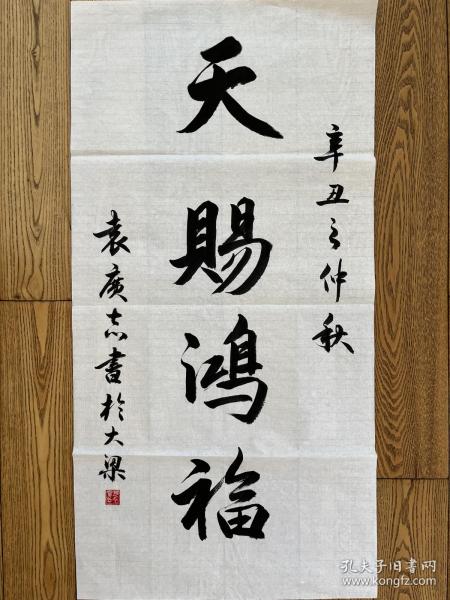 辛丑之仲秋
天赐鸿福
袁廣志書於大梁
孔夫子旧书网
www.kongfz.com